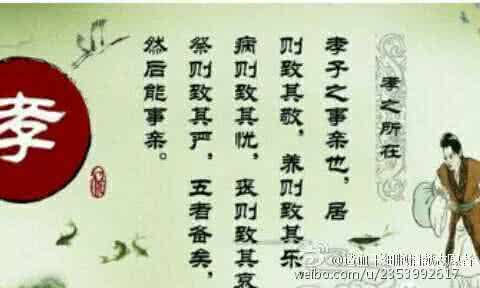 孝之所在
孝子之事亲也，居
则致其敬，养则致其乐
病则致其忧，丧则致其哀
祭则致其严，五者备矣，
然后能事亲。
孝
weibo.com/u/2353992617